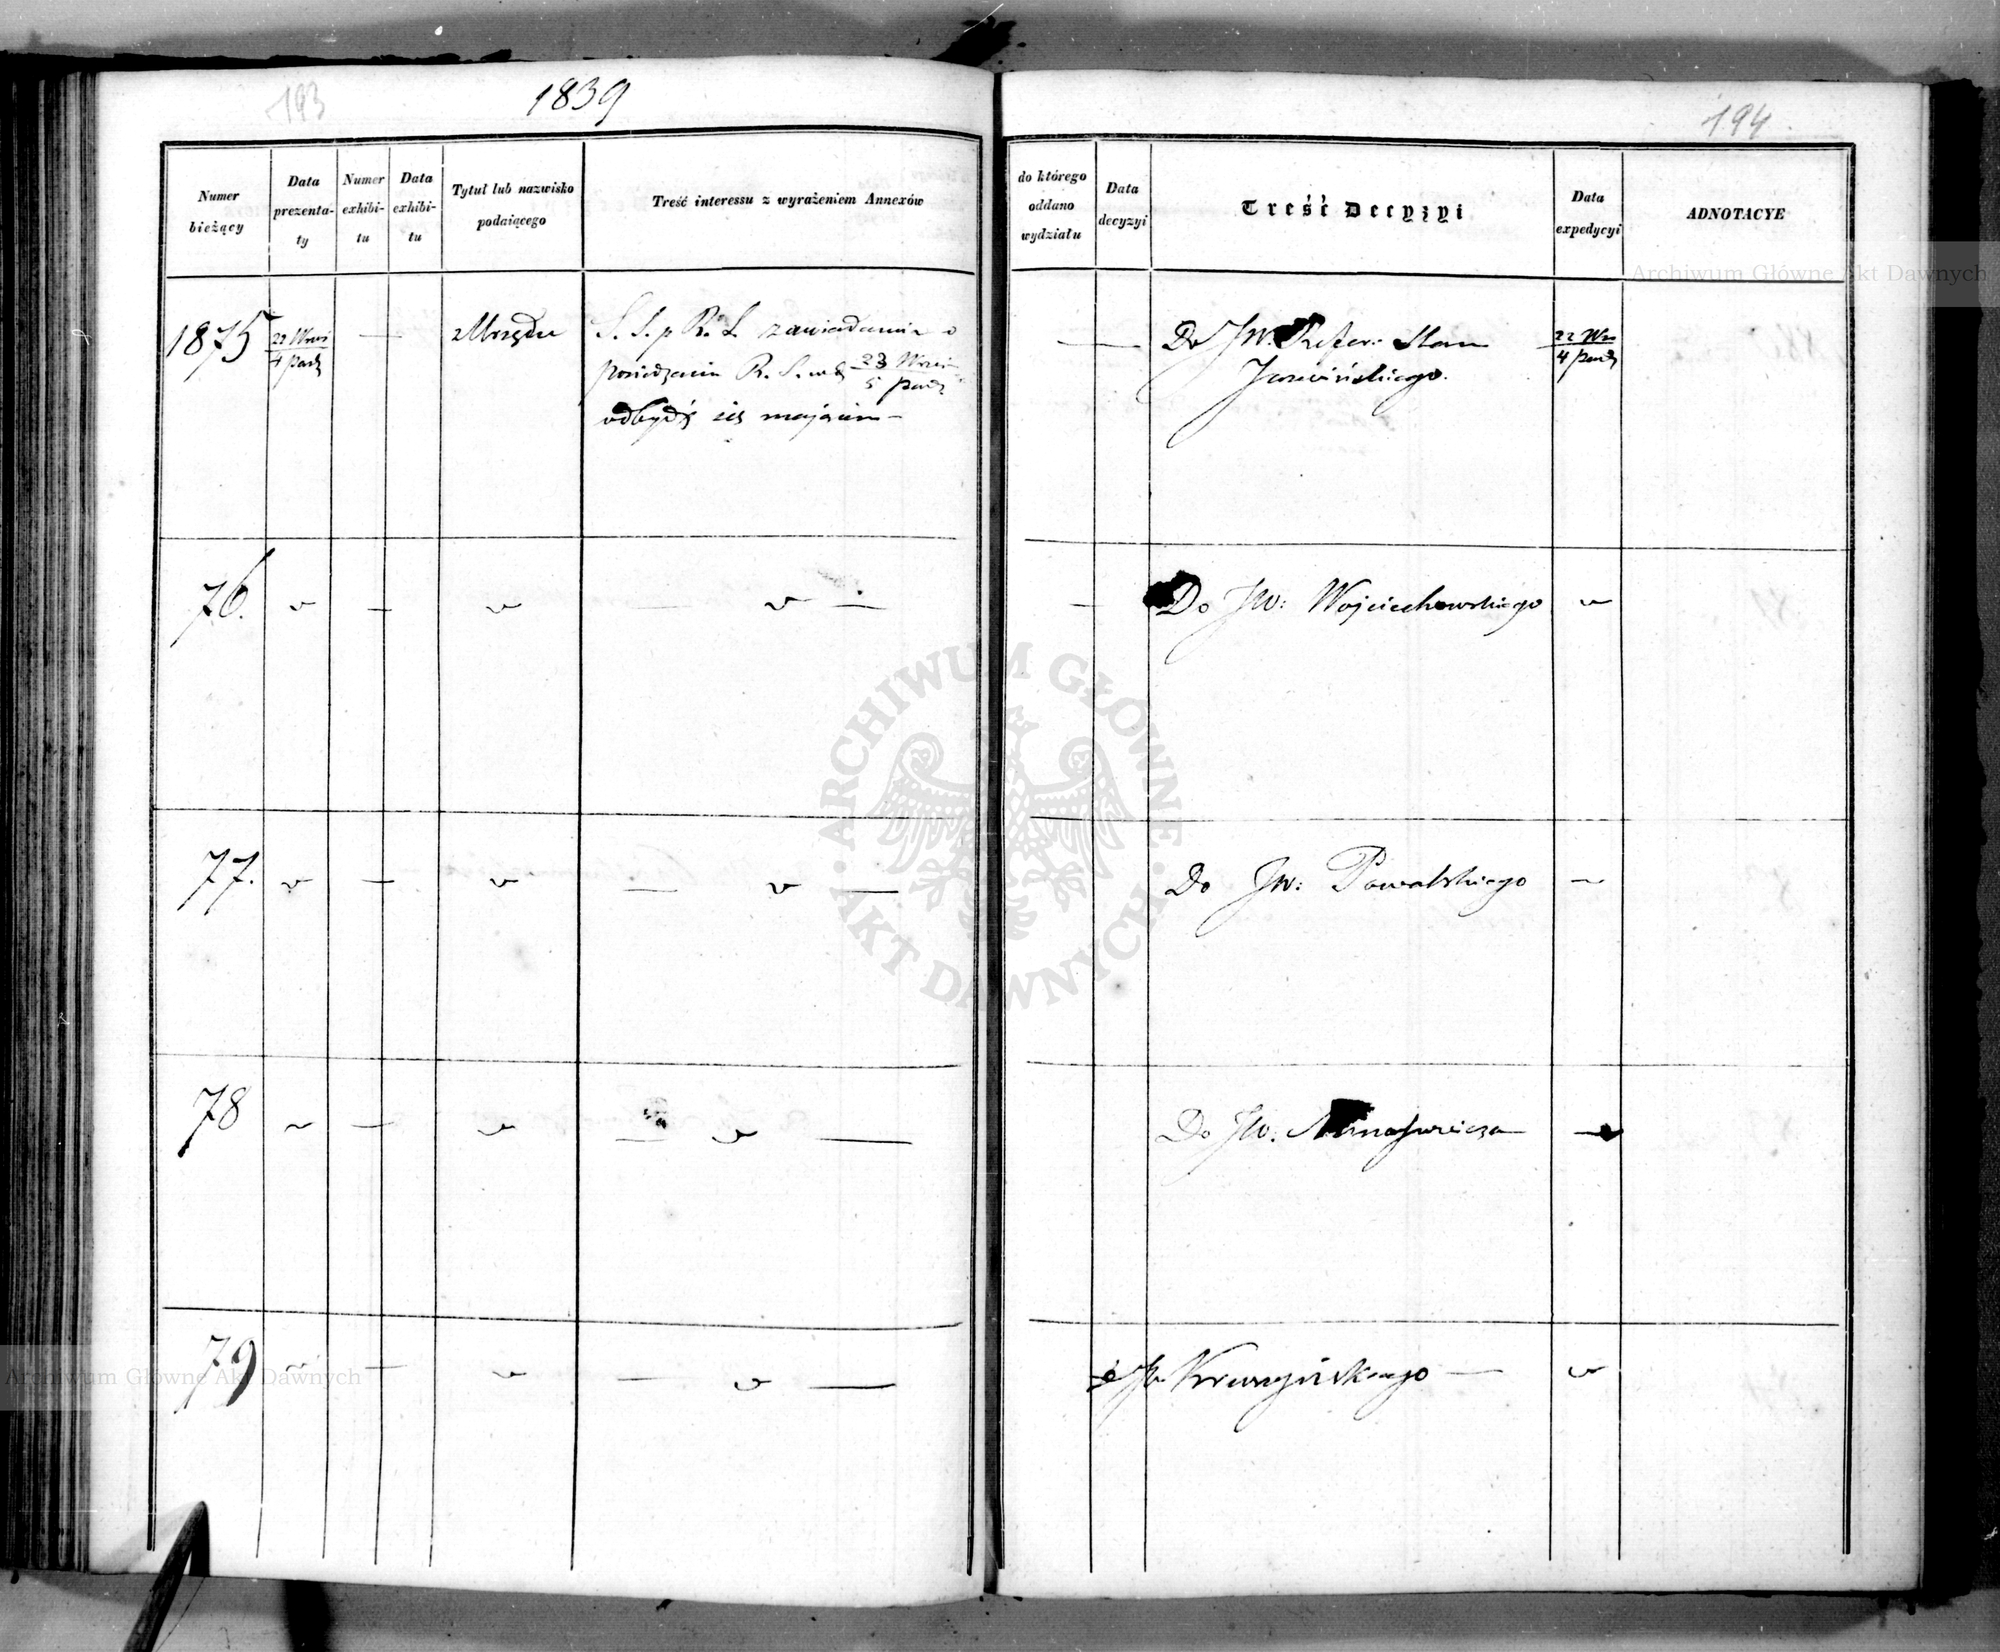 193
1839
Numer
bieżący
Data
prezenta-
ty
Numer
exhibi-
tu
Data
exhibi-
tu
Tytuł lub nazwisko
podaiącego
Treść interessu z wyrażeniem Annexów
1875 22 Wrzś — z Urzędu S. S. p R. S. zawiadamia o
4 Paźd posiedzeniu R. S. 23 Wrześ
5 Paźd
odbydź się mającem —
76. v — v — v —
77. v — v — v —
78 v — v — v —
79 v — v — v —
194
do którego
oddano
wydziału
Data
decyzyi
Treść Decyzyi
Data
expedycyi
ADNOTACYE
— Do JW. Refer: Stanu 22 Wrz
4 Paźd
— Do JW: Wojciechowskiego v
Do JW: Powalskiego ~
Do JW:
JW Krewczyńskiego — v
ARCHIWUM GŁÓWNE
AKT DAWNYCH
Archiwum Główne Akt Dawnych
Archiwum Główne Akt Dawnych